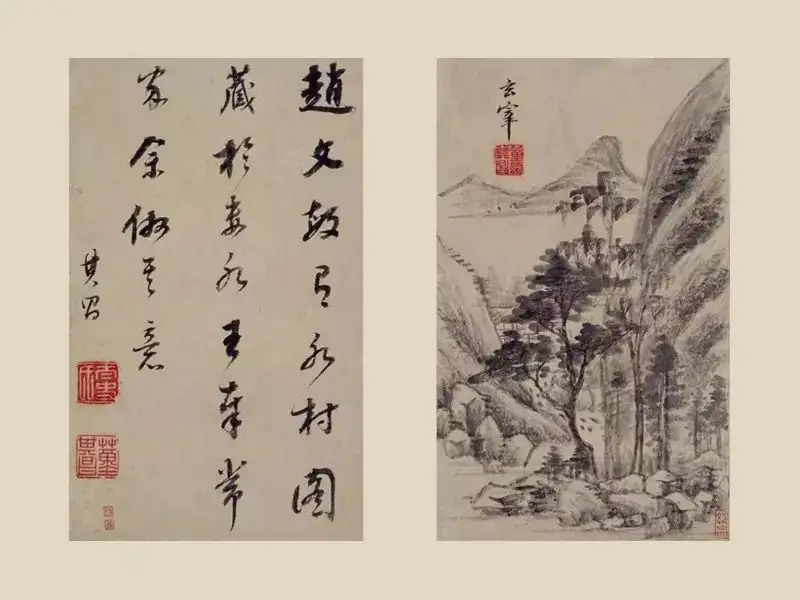 玄宰
趙文敏有水村圖
藏於婁水王奉常
家余倣其意
其昌